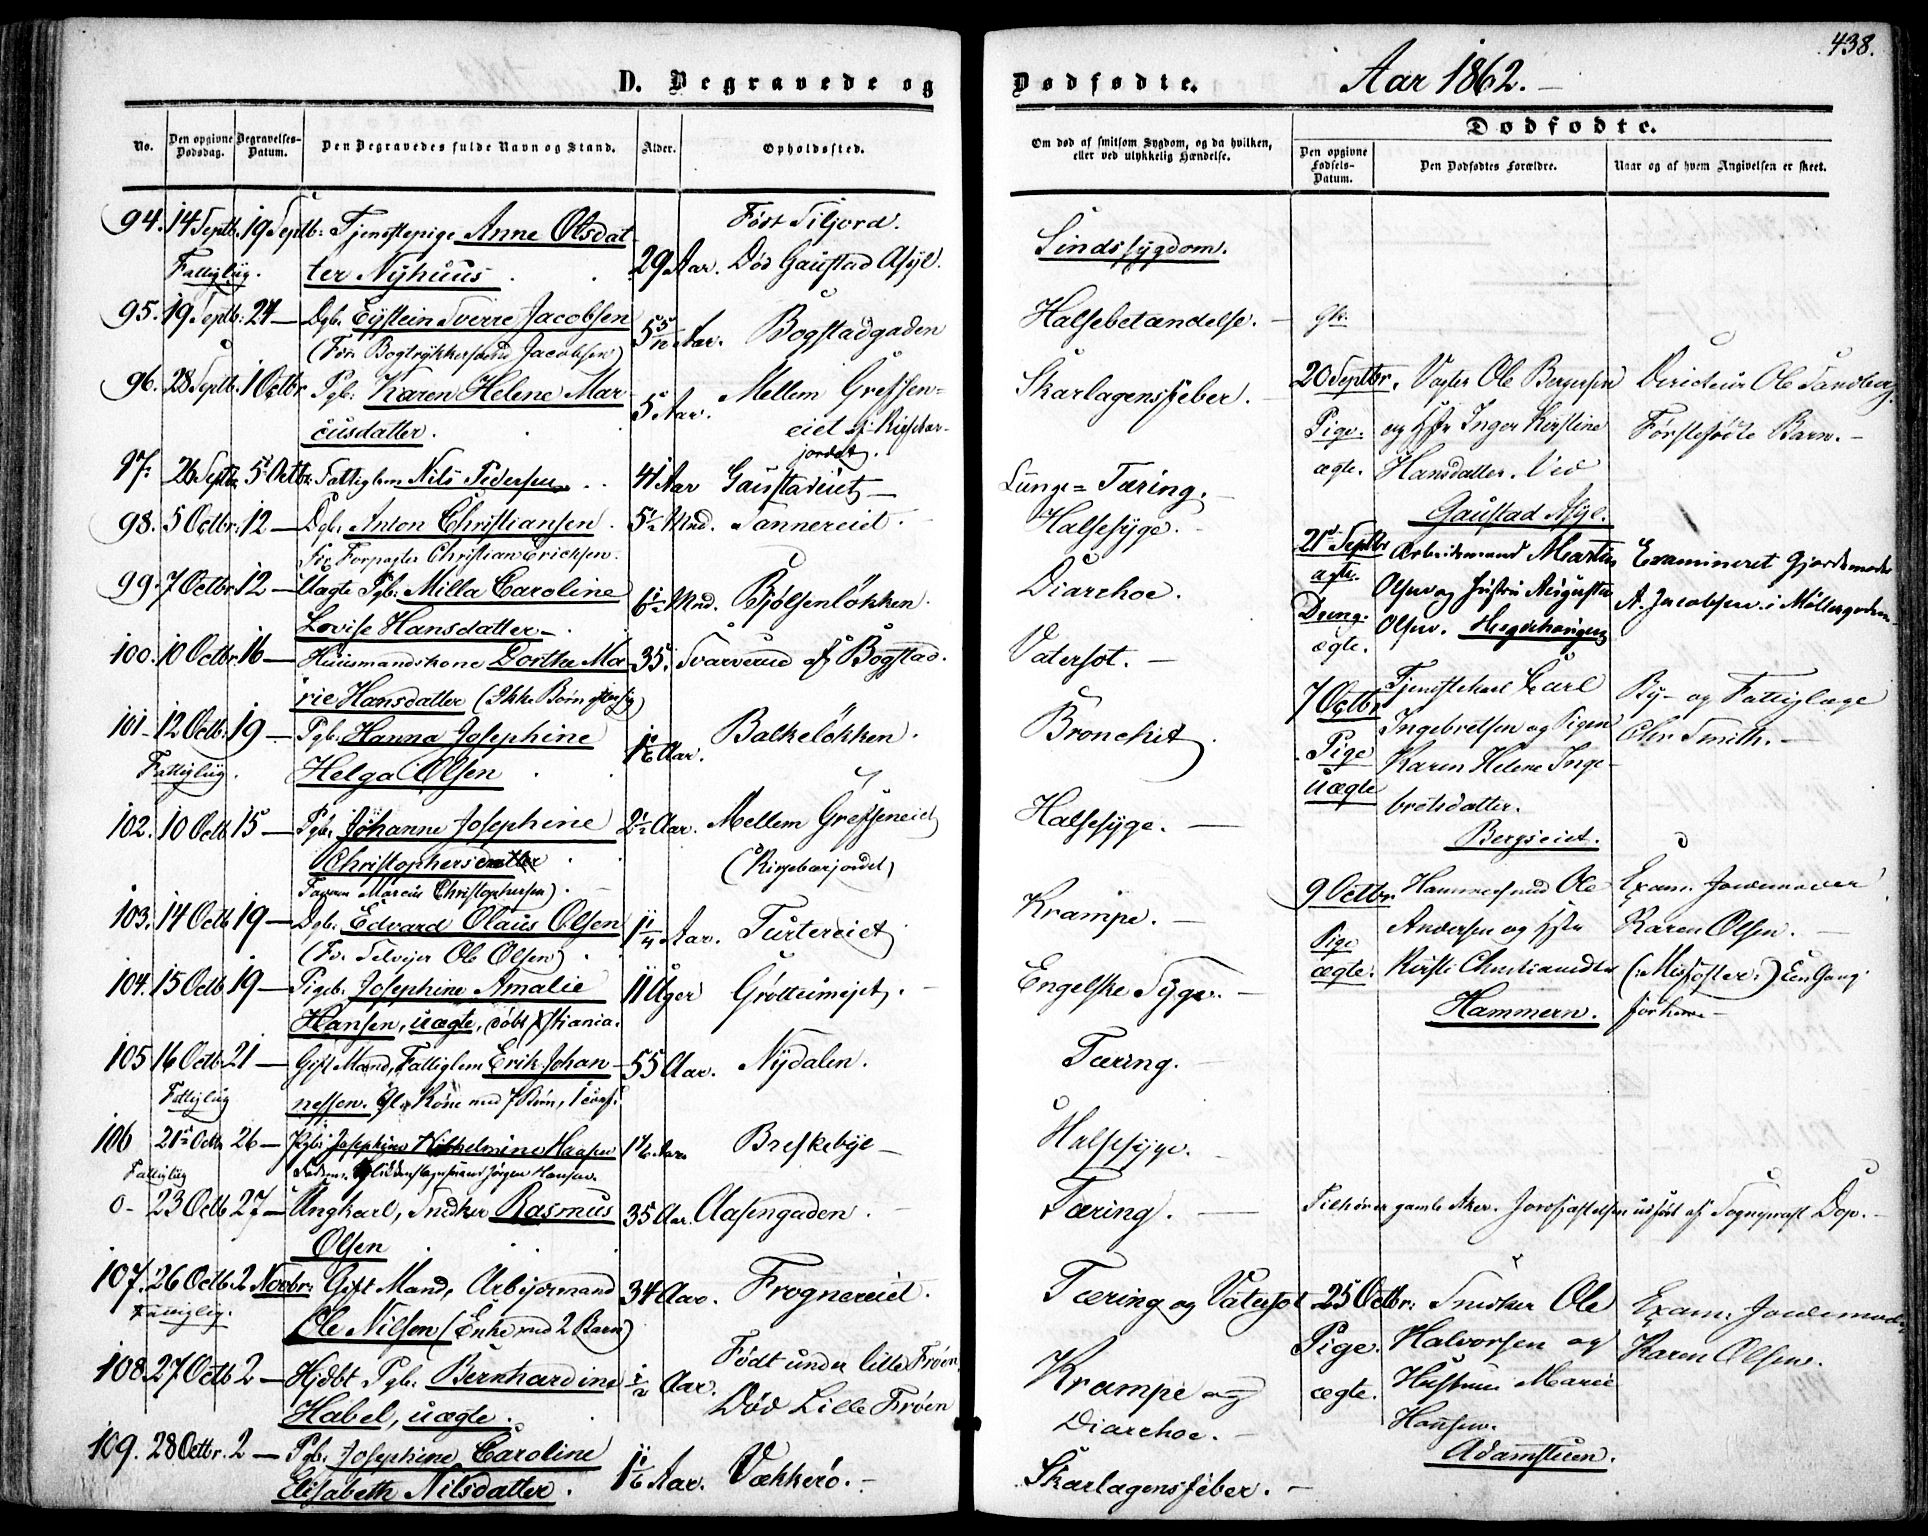 438.
D. Begravede og Dødfødte. Aar 1862.
No.
Den opgivne Dødsdag.
Begravelses-Datum.
Den Begravedes fulde Navn og Stand.
Alder.
Opholdssted.
Om død af smitsom Sygdom, og da hvilken,
eller ved ulykkelig Hændelse.
Dødfødte.
Den opgivne Fødsels-Datum.
Den Dødfødtes Forældre.
Naar og af hvem Angivelsen er skeet.
94. 14 Septb. 19 Septb: Tjenstepige Anne Olsdat-
Født Siljord.
Fattiglig. ter Nyhuus 29 Aar. Død Gaustad Asyl. Sindssygdom.
95. 19 Septb: 24 — Dgb. Eystein Sverre Jacobsen 5 5/12 Aar. Bogstadgaden Halsebetændelse. —
(Far Bogtrykker Jacobsen)
96. 28 Septb. 1 Octbr Pgb. Karen Helene Mar-
cusdatter. 5 Aar. Mellem Grefsen-
eiet
Skarlagensfeber. —
97. 26 Septb. 5 Octbr. Fattiglem Nils Pedersen 41 Aar Gaustadeiet — Lunge=Tæring.
98. 5 Octbr: 12 — Dgb. Anton Christiansen 5 1/2 Mnd. Tannereiet. Halsesyge. —
Forpagter Christian Ericksen.
99. 7 Octbr 12 — Uægte Pgb. Milla Caroline
Lovise Hansdatter — Mnd. Bjølsenløkken. Diarehoe.
100. 10 Octbr. 16 — Huusmandskone Dorthe Ma-
rie Hansdatter (Ikke Børn 35. Svarverud af Bogstad. Vatersot. —
101 — 12 Octb. 19 — Pgb. Hanna Josephine
Fattiglig. Helga Olsen 1 1/6 Aar. Balkeløkken. Bronchit.
102. 10 Octb 15 — Pgb. Johanne Josephine 2 1/2 Aar. Mellem Grefseneiet Halsesyge. —
Christophersdatter (Kirsebærjordet)
Faderen Marcus Christophersen).
103. 14 Octb 19 — Dgb. Edvard Olaus Olsen 1 1/4 Aar. Turtereiet Krampe. —
(Far Selveier Ole Olsen)
104. 15 Octb 19 — Pigeb. Josephine Amalie 11 Uger Grøttumeiet. Engelske Syge. —
Hansen, uægte, døbt Xstiania.
105 16 Octb 21 — Gift Mand, Fattiglem Erik Johan-
Fattiglig nessen. Kone med 7 Børn, 55 Aar. Nydalen. Tæring. —
106 21 Octb 26 — Pgb. Josephine Wilhelmine Hansen Aar. Briskebye — Halsesyge.
Fattiglig Jørgen Hansen.
0 — 23 Octb 27 — Ungkarl, Snedker Rasmus
Olsen 35 Aar. Aasengaden. Tæring. —
107. 26 Octb. 2 Novbr: Gift Mand, Arbeidsmand
Fattiglig. Ole Nilsen (Enke med 2 Barn) 34 Aar. Frognereiet. Tæring og Vatersot
108. 27 Octb 2 — Hjdbt Pgb. Bernhardine
Habel, uægte. 1/2 Aar. Født under lille Frøen
Død Lille Frøen
Krampe og
Diarehoe. —
109. 28 Octbr. 2 — Pgb. Josephine Caroline
Elisabeth Nilsdatter. 1 1/6 Aar. Vækkerø. — Skarlagensfeber. —
20 Septbr.
Pige.
ægte.
Vogter Ole Bergersen
og Hstr Inger Kirstine
Hansdatter. Ved
Gaustad Asyl.
Directeur Ole Sandberg.
Førstefødte Barn. —
21 Septbr
Dreng.
ægte.
Arbeidsmand Martin
Olsen og Hustru Augusta
Olsen. Hegdehaugen
Examineret Gjordemoder
A. Jacobsen i Møllergaden
7 Octbr
Pige
uægte
Tjenestekarl Carl
Ingebretsen og Pigen
Karen Helene Inge-
bretsdatter.
Bergseiet.
By- og Fattiglæge
Chr Smith. —
9 Octbr.
Pige
ægte.
Ole
Andersen og Hstr
Kirsti Christiansdtr
Hammern.
Exam. Jordemoder
Karen Olsen. —
(Misfoster:) Een Gang
forhen —
Tilhører gamle Aker. Jordfæstelsen udført af Sognepræst Dop. —
25 Octbr:
Pige.
ægte.
Snedker Ole
Halvorsen og
Hustru Marie
Hansen.
Adamstuen.
Exam: Jordemoder
Karen Olsen.